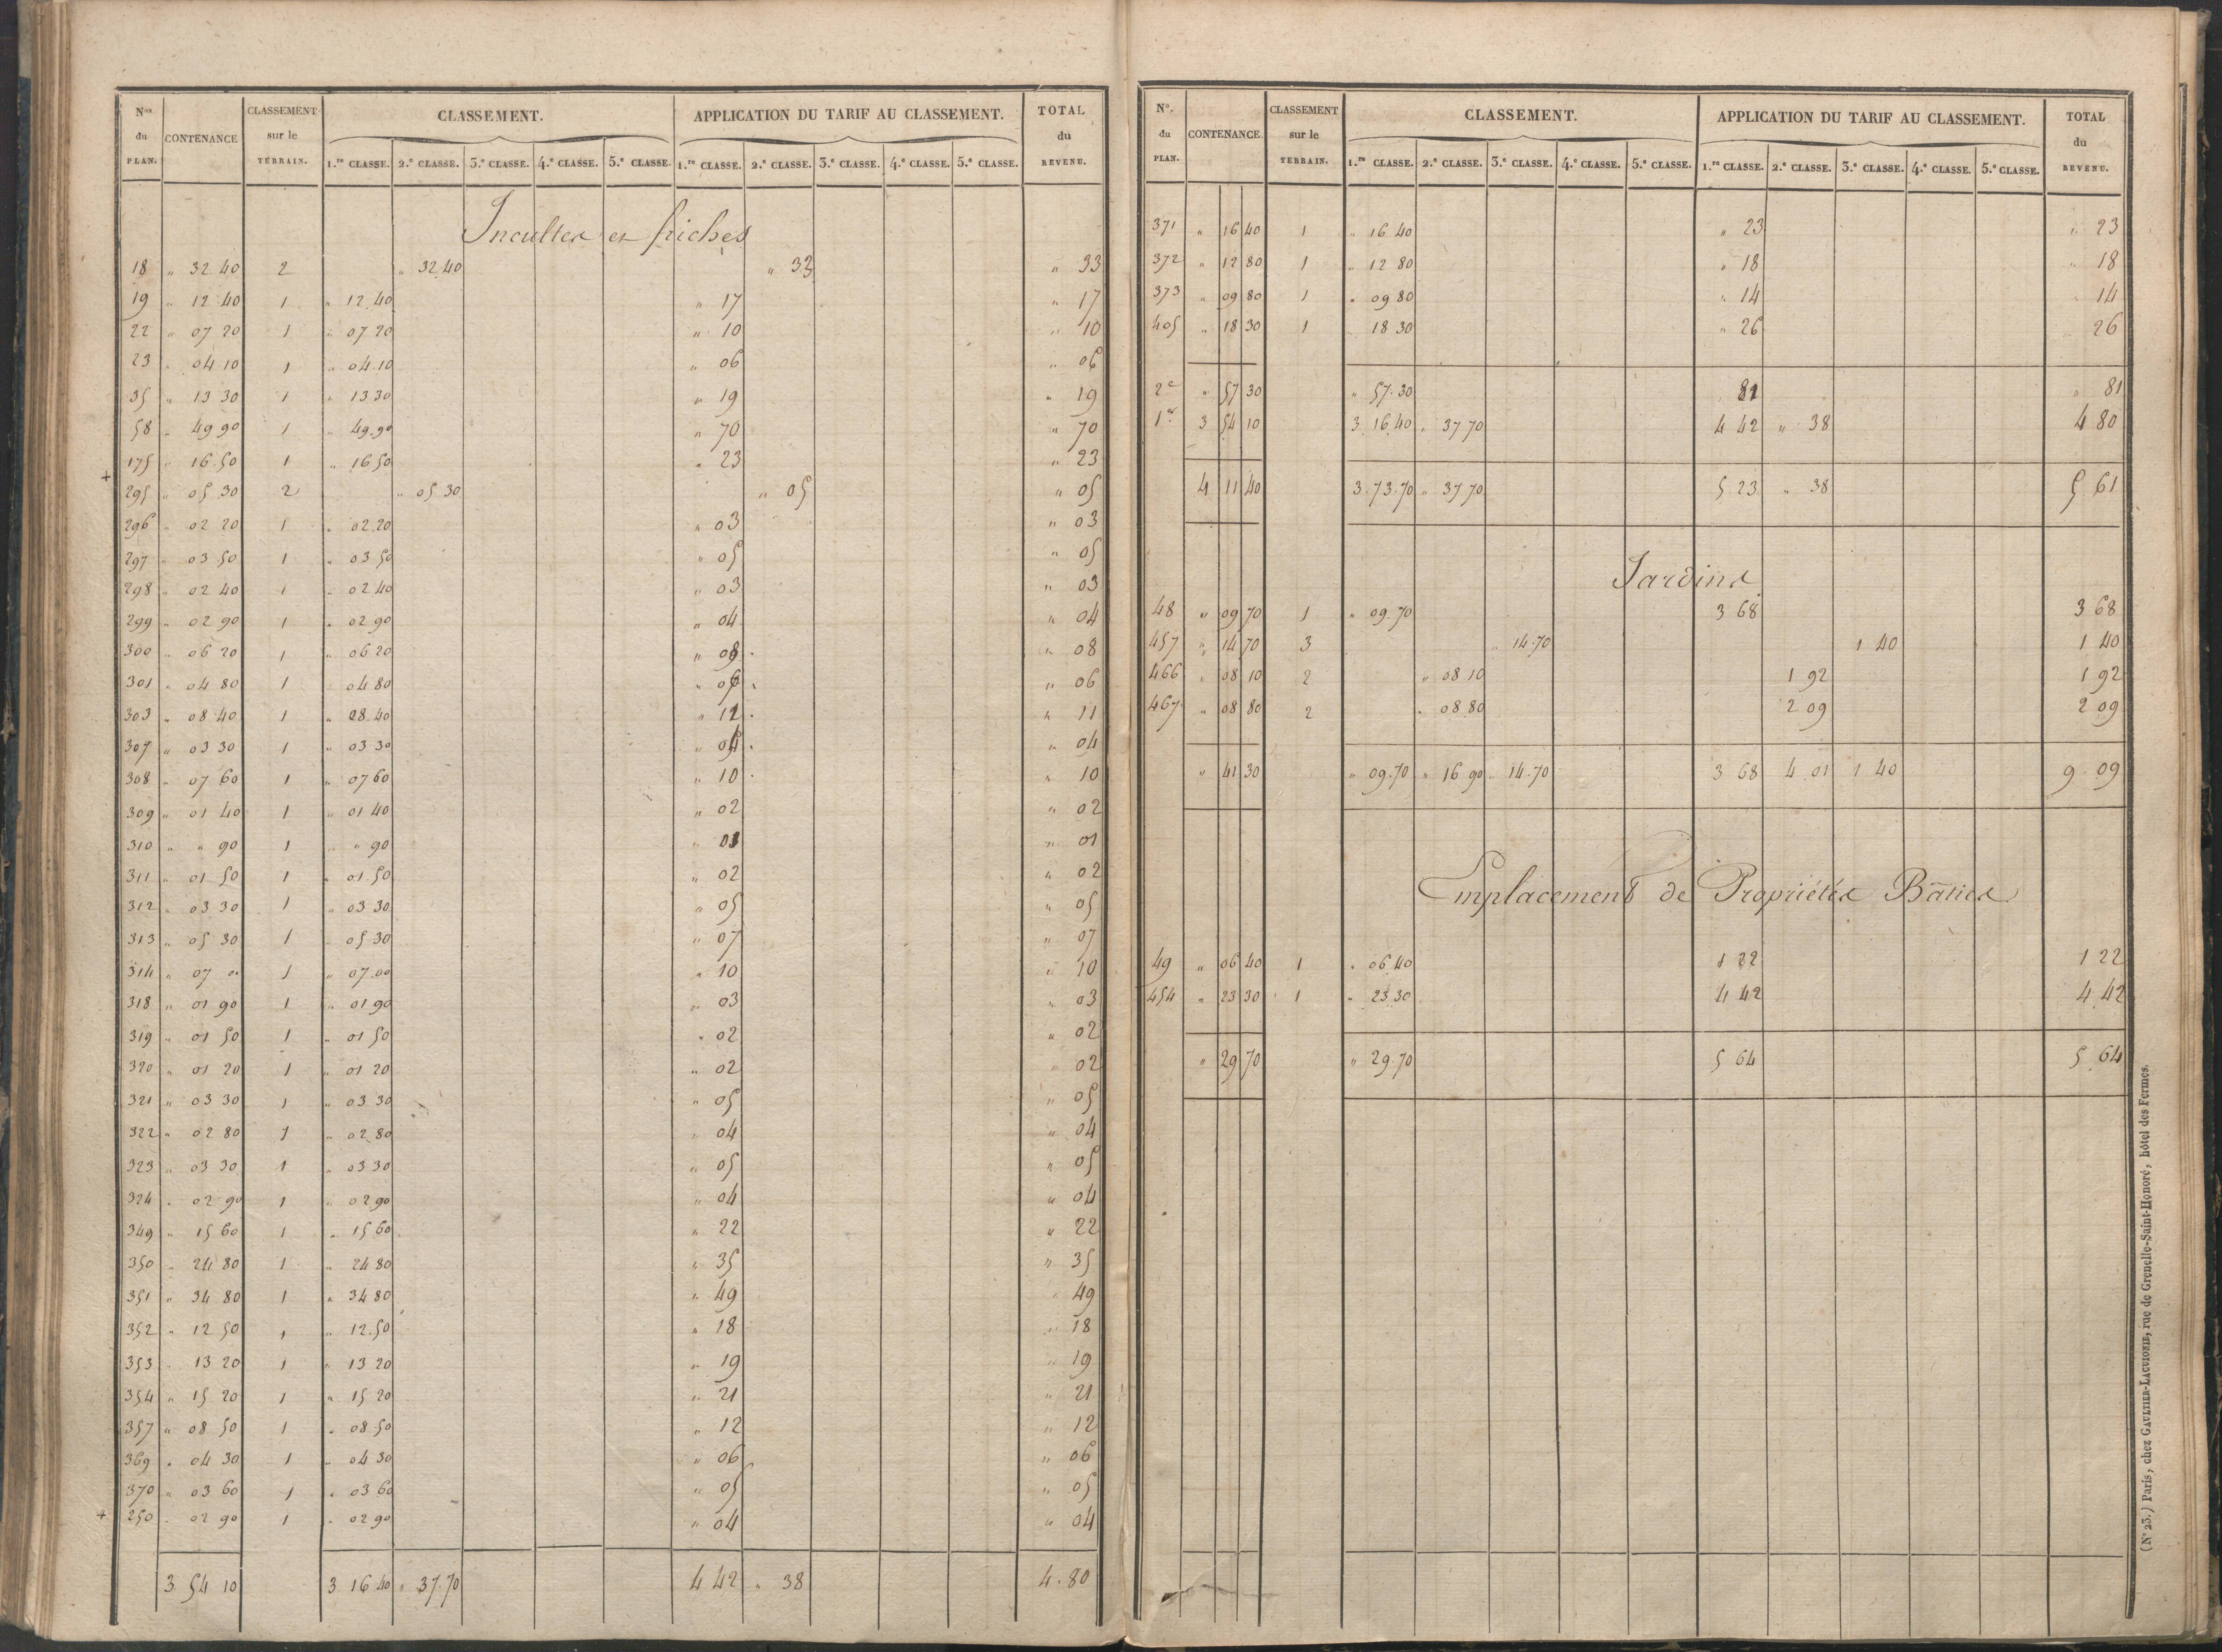 Nos du PLAN. CONTENANCE CLASSEMENT sur le TERRAIN. CLASSEMENT. APPLICATION DU TARIF AU CLASSEMENT. TOTAL du REVENU.
1.re CLASSE. 2.e CLASSE. 3.e CLASSE. 4.e CLASSE. 5.e CLASSE. 1.re CLASSE. 2.e CLASSE. 3.e CLASSE. 4.e CLASSE. 5.e CLASSE.
Incultes et friches
18 " 32 40 2 " 32 40 " 33 " 33
19 " 12 40 1 " 12 40 " 17 " 17
22 " 07 20 1 " 07 20 " 10 " 10
23 " 04 10 1 " 04 10 " 06 " 06
35 " 13 30 1 " 13 30 " 19 " 19
58 " 49 90 1 " 49.90 " 70 " 70
175 " 16 50 1 " 16 50 " 23 " 23
+ 295 " 05 30 2 " 05 30 " 05 " 05
296 " 02 20 1 " 02.20 " 03 " 03
297 " 03 50 1 " 03 50 " 05 " 05
298 " 02 40 1 " 02 40 " 03 " 03
299 " 02 90 1 " 02 90 " 04 " 04
300 " 06 20 1 " 06 20 " 08 " 08
301 " 04 80 1 04 80 " 06 " 06
303 " 08 40 1 " 08.40 " 11 " 11
307 " 03 30 1 " 03 30 " 04 " 04
308 " 07 60 1 " 07 60 " 10 " 10
309 " 01 40 1 " 01 40 " 02 " 02
310 " " 90 1 " " 90 " 01 " 01
311 " 01 50 1 " 01.50 " 02 " 02
312 " 03 30 1 " 03 30 " 05 " 05
313 " 05 30 1 " 05 30 " 07 " 07
314 " 07 00 1 " 07.00 " 10 " 10
318 " 01 90 1 " 01 90 " 03 " 03
319 " 01 50 1 " 01 50 " 02 " 02
320 " 01 20 1 " 01 20 " 02 " 02
321 " 03 30 1 " 03 30 " 05 " 05
322 " 02 80 1 " 02 80 " 04 " 04
323 " 03 30 1 " 03 30 " 05 " 05
324 " 02 90 1 " 02 90 " 04 " 04
349 " 15 60 1 " 15 60 " 22 " 22
350 " 24 80 1 " 24 80 " 35 " 35
351 " 34 80 1 " 34 80 " 49 " 49
352 " 12 50 1 " 12.50 " 18 " 18
353 " 13 20 1 " 13 20 " 19 " 19
354 " 15 20 1 " 15 20 " 21 " 21
357 " 08 50 1 " 08 50 " 12 " 12
369 " 04 30 1 " 04 30 " 06 " 06
370 " 03 60 1 " 03 60 " 05 " 05
+ 250 " 02 90 1 " 02 90 " 04 " 04
3 54 10 3 16 40 " 37.70 4 42 " 38 4.80
No. du PLAN. CONTENANCE. CLASSEMENT sur le TERRAIN. CLASSEMENT. APPLICATION DU TARIF AU CLASSEMENT. TOTAL du REVENU.
1.re CLASSE. 2.e CLASSE. 3.e CLASSE. 4.e CLASSE. 5.e CLASSE. 1.re CLASSE. 2.e CLASSE. 3.e CLASSE. 4.e CLASSE. 5.e CLASSE.
371 " 16 40 1 " 16 40 " 23 " 23
372 " 12 80 1 " 12 80 " 18 " 18
373 " 09 80 1 " 09 80 " 14 " 14
405 " 18 30 1 18 30 " 26 26
2e " 57 30 " 57.30 81 " 81
1re 3 54 10 3 16 40 " 37 70 4 42 " 38 4 80
4 11 40 3.73.70 " 37 70 5 23 " 38 5 61
Jardins
48 " 09 70 1 " 09.70 3 68 3 68
457 " 14 70 3 " 14.70 1 40 1 40
466 " 08 10 2 " 08 10 1 92 1 92
467 " 08 80 2 " 08 80 2 09 2 09
" 41 30 " 09.70 " 16 90 " 14.70 3 68 4 01 1 40 9.09
Emplacement de Propriétés Bâties
49 " 06 40 1 " 06 40 1 22 1 22
454 " 23 30 1 " 23 30 4 42 4 42
" 29 70 " 29.70 5 64 5 64
(No 23.) Paris, chez GAULTIER-LAGUIONIE, rue de Grenelle-Saint-Honoré, hôtel des Fermes.